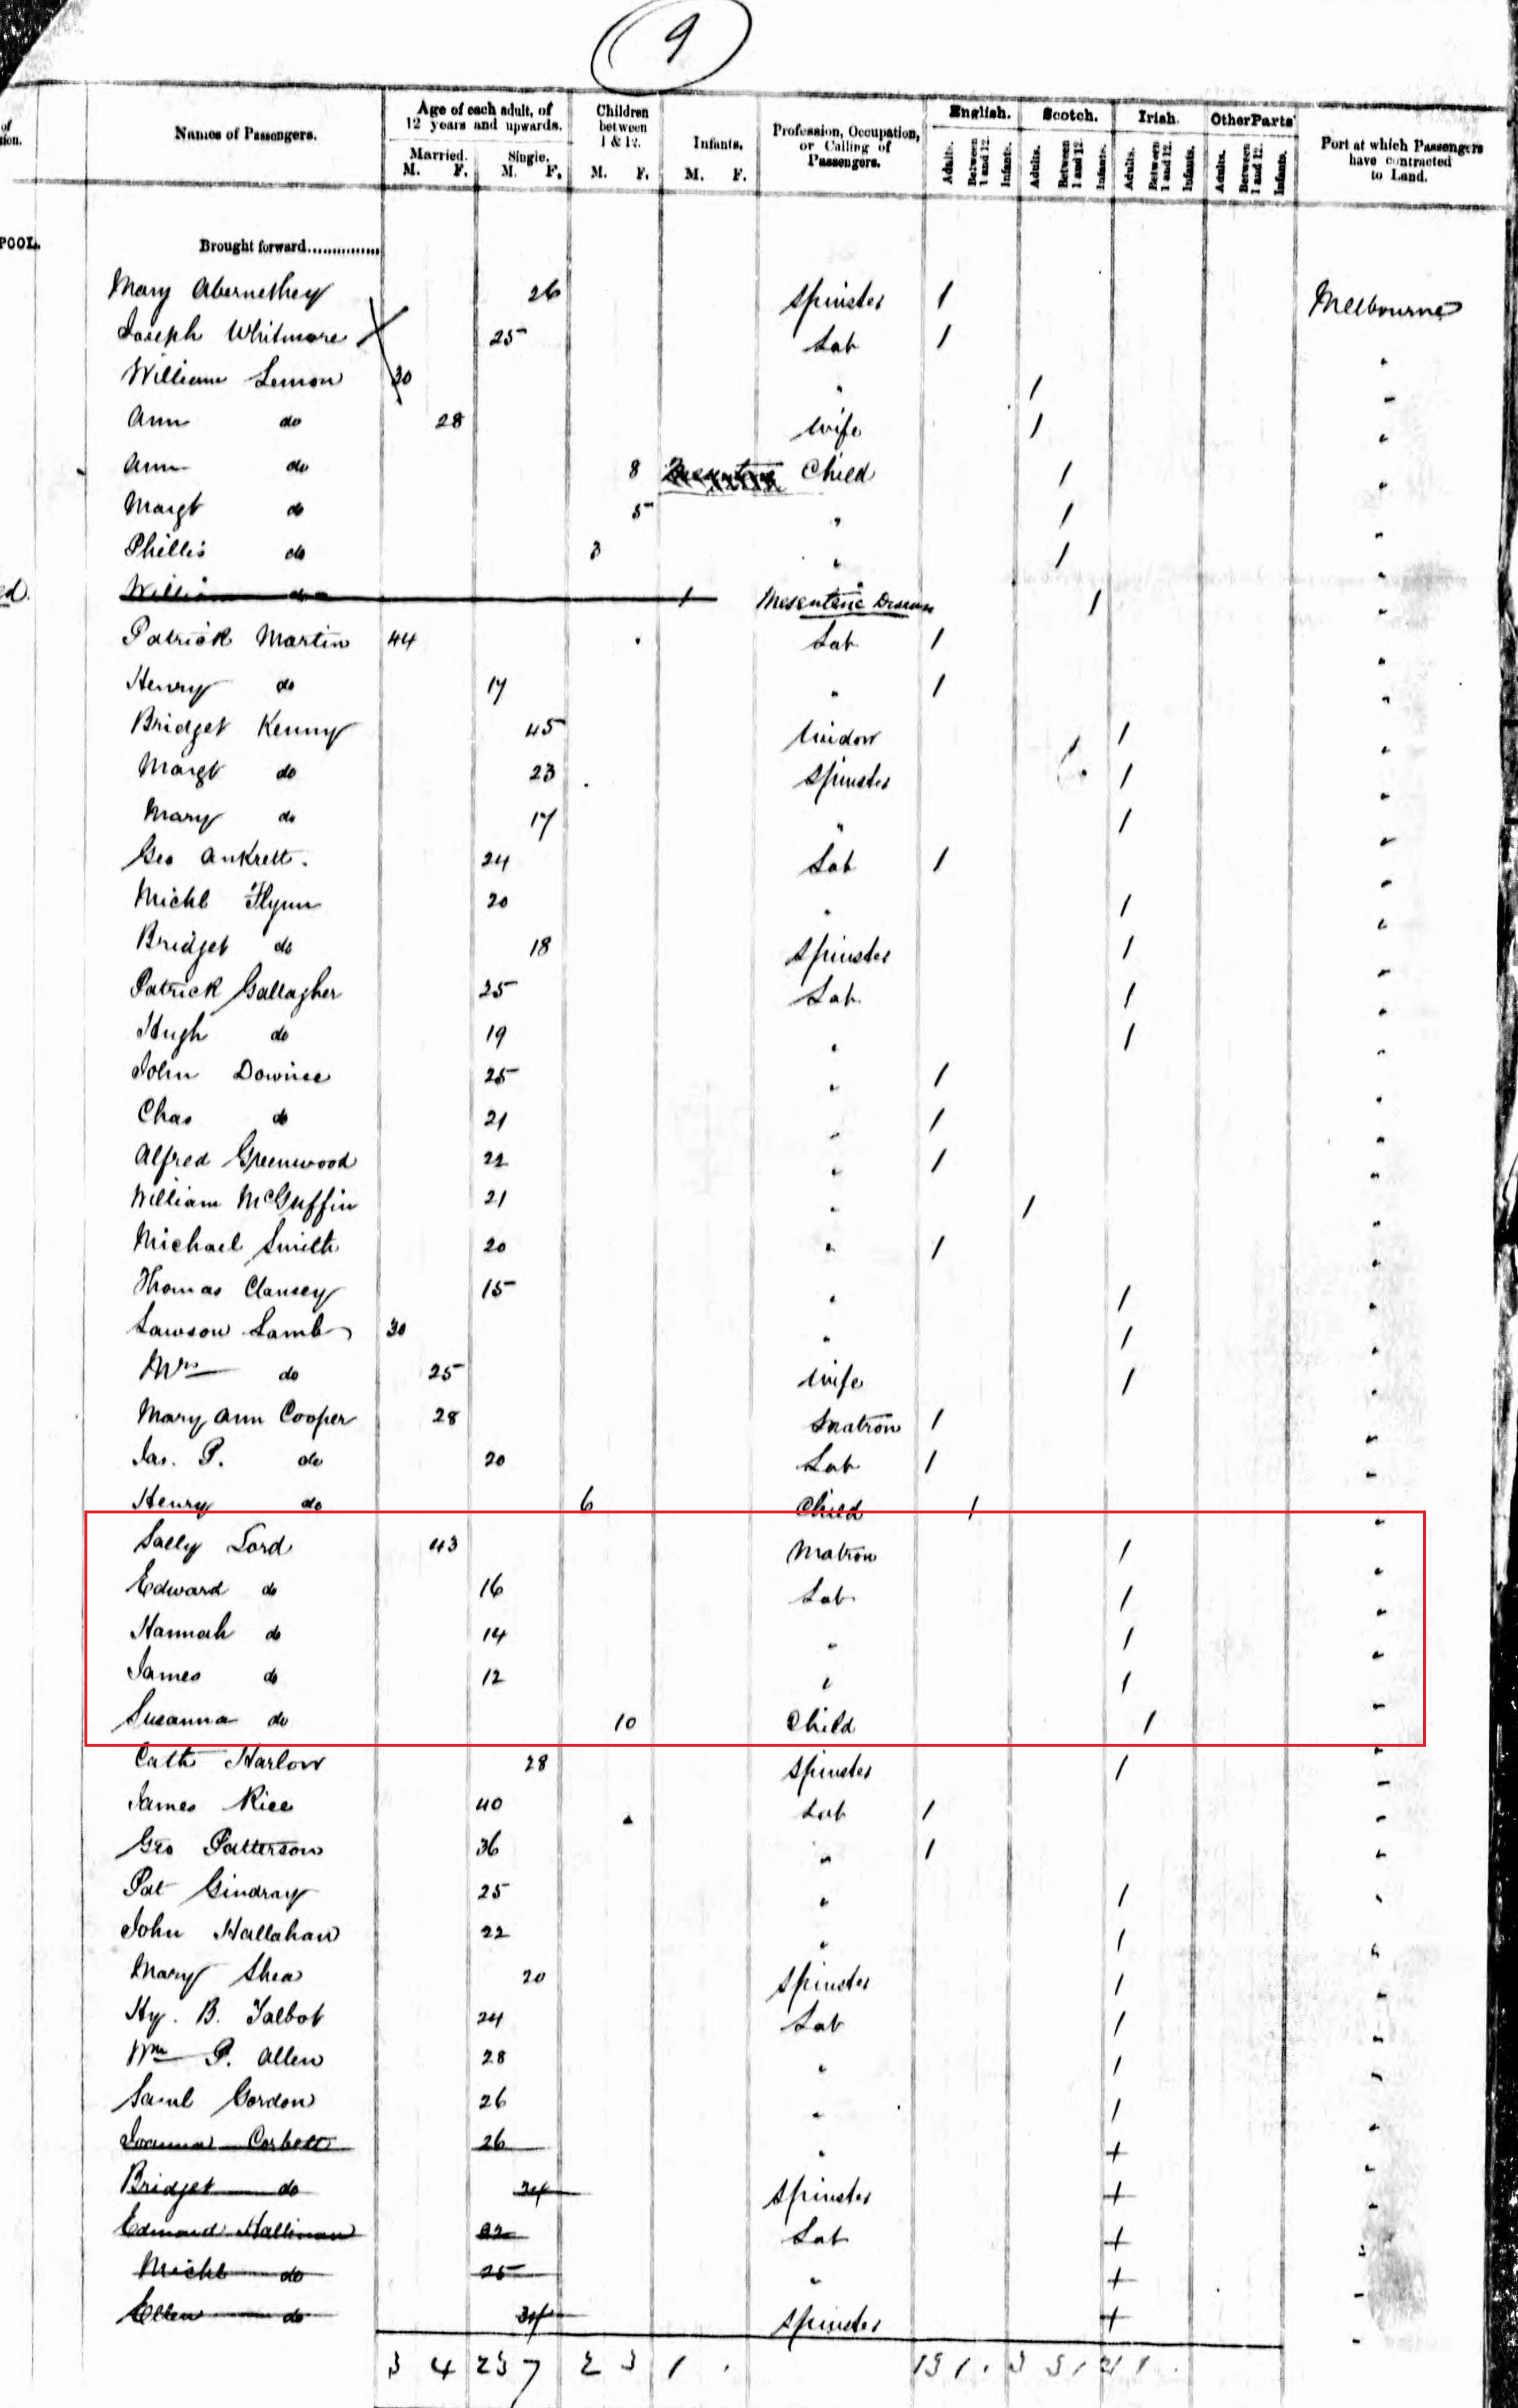 9
of
tion.
Names of Passengers.
Age of each adult, of 12 years and upwards.
Married. M. F.
Single. M. F.
Children between 1 & 12. M. F.
Infants. M. F.
Profession, Occupation, or Calling of Passengers.
English. Adults. Between 1 and 12. Infants.
Scotch. Adults. Between 1 and 12. Infants.
Irish. Adults. Between 1 and 12. Infants.
Other Parts Adults. Between 1 and 12. Infants.
Port at which Passengers have contracted to Land.
POOL.
Brought forward...............
Mary Abernethey 26 Spinster 1 Melbourne
Joseph Whitmore 25 Lab 1 "
William Lemon 30 " 1 "
Ann do 28 Wife 1 "
Ann do 8 Child 1 "
Margt do 5 " 1 "
Phillis do 3 " 1 "
ed. William do 1 Mesenteric Disease 1 "
Patrick Martin 44 Lab 1 "
Henry do 17 " 1 "
Bridget Kenny 45 Widow 1 "
Margt do 23 Spinster 1 "
Mary do 17 " 1 "
Geo Ankrett. 24 Lab 1 "
Michl Flynn 20 " 1 "
Bridget do 18 Spinster 1 "
Patrick Gallagher 25 Lab 1 "
Hugh do 19 " 1 "
John Downee 25 " 1 "
Chas do 21 " 1 "
Alfred Greenwood 22 " 1 "
William McGuffin 21 " 1 "
Michael Smith 20 " 1 "
Thomas Clansey 15 " 1 "
Lawson Lamb 30 " 1 "
Mrs do 25 Wife 1 "
Mary Ann Cooper 28 Matron 1 "
Jas. P. do 20 Lab 1 "
Henry do 6 Child 1 "
Sally Lord 43 Matron 1 "
Edward do 16 Lab 1 "
Hannah do 14 " 1 "
James do 12 " 1 "
Susanna do 10 Child 1 "
Cath Harlow 28 Spinster 1 "
James Rice 40 Lab 1 "
Geo Patterson 36 " 1 "
Pat Gindray 25 " 1 "
John Hallahan 22 " 1 "
Mary Shea 20 Spinster 1 "
Hy. B. Talbot 24 Lab 1 "
Wm P. Allen 28 " 1 "
Saml Gordon 26 " 1 "
Joanna Corbett 26 " 1 "
Bridget do 24 Spinster 1 "
Edmond Hallinan 22 Lab 1 "
Michl do 25 " 1 "
Ellen do 24 Spinster 1 "
3 4 23 7 2 3 1 . 13 1 . 3 3 1 21 1 .